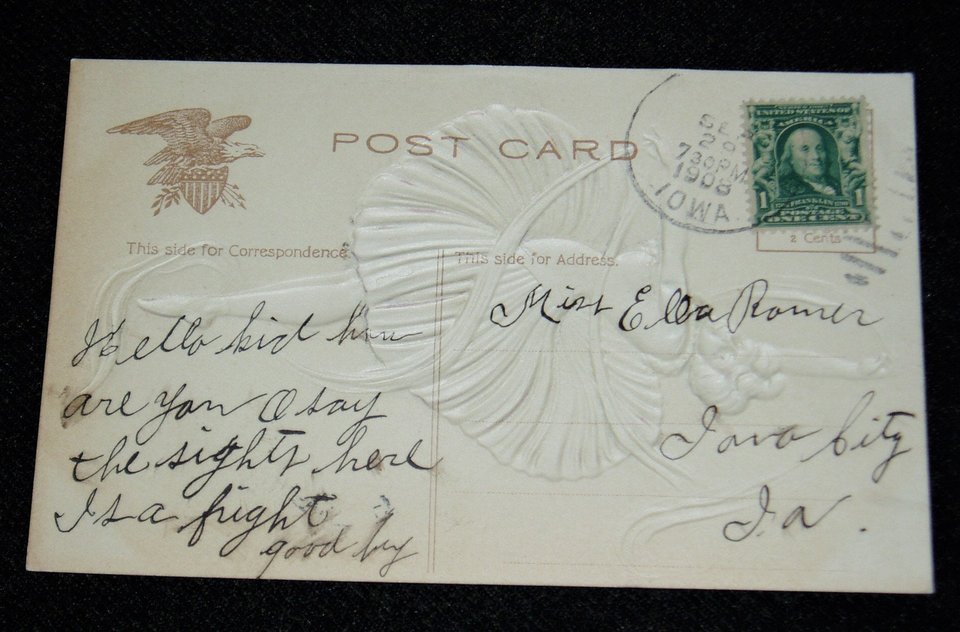 POST CARD
SEP
29
730PM
1908
IOWA
UNITED STATES OF
AMERICA
1
1
FRANKLIN
POSTAGE
ONE CENT
2 Cents
This side for Correspondence.
This side for Address.
Hello kid how
are you O say
the sights here
Is a fright
good by
Miss Ella Romer
Iowa City
Ia.